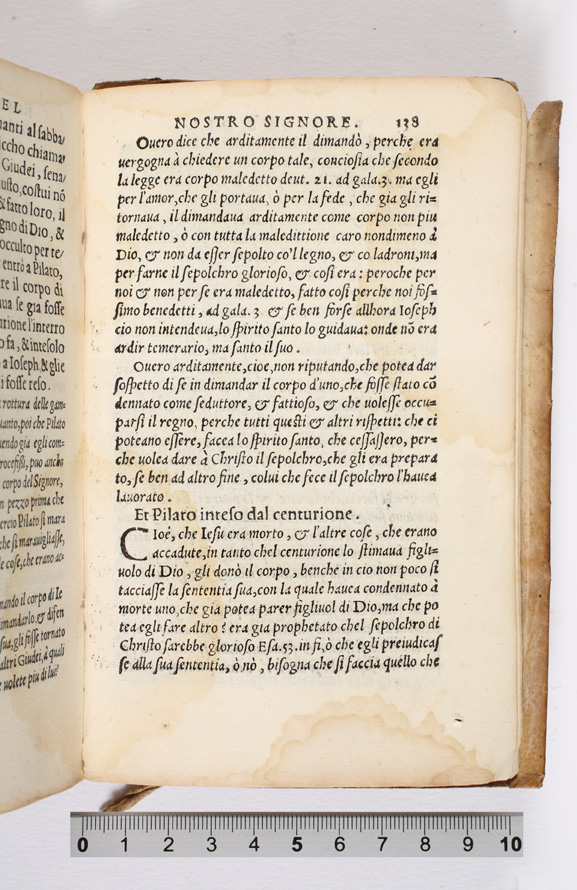 EL
uanti al sabba/
ccho chiama/
Giudei, sena/
usto, costui nõ
& fatto loro, il
gno di Dio, &
occulto per te/
entrò a Pilato,
re il corpo di
ua se gia fosse
urione l'interro
o fa, & intesolo
a Ioseph, & glie
i fosse reso.
rottura delle gam-
uanto, poi che Pilato
uendo gia egli com-
rocefissi, puo anche
corpo del Signore,
n pezzo prima che
ercio Pilato si mara
che si marauigliasse,
le cose, che erano ac-
mando il corpo di Ie
imandarlo, & difen
sua, gli fosse tornato
altri Giudei, à quali
e uolete piu di lui?
NOSTRO SIGNORE. 138
Ouero dice che arditamente il dimandò, perche era
uergogna à chiedere un corpo tale, conciosia che secondo
la legge era corpo maledetto deut. 21. ad gala.3. ma egli
per l'amor, che gli portaua, ò per la fede, che gia gli ri=
tornaua, il dimandaua arditamente come corpo non piu
maledetto, ò con tutta la maledittione caro nondimeno à
Dio, & non da esser sepolto co'l legno, & co ladroni, ma
per farne il sepolchro glorioso, & cosi era: peroche per
noi & non per se era maledetto, fatto cosi perche noi fos=
simo benedetti, ad gala. 3. & se ben forse allhora Ioseph
cio non intendeua, lo spirito santo lo guidaua: onde nõ era
ardir temerario, ma santo il suo.
Ouero arditamente, cioe, non riputando, che potea dar
sospetto di se in dimandar il corpo d'uno, che fosse stato cõ
dennato come seduttore, & fattioso, & che uolesse occu=
parsi il regno, perche tutti questi & altri rispetti: che ci
poteano essere, facea lo spirito santo, che cessassero, per=
che uolea dare à Christo il sepolchro, che gli era prepara
to, se ben ad altro fine, colui che fece il sepolchro l'hauea
lauorato.
Et Pilato inteso dal centurione.
Cioè, che Iesu era morto, & l'altre cose, che erano
accadute, in tanto chel centurione lo stimaua figli=
uolo di Dio, gli donò il corpo, benche in cio non poco si
tacciasse la sententia sua, con la quale hauea condennato à
morte uno, che gia potea parer figliuol di Dio, ma che po
tea egli fare altro? era gia prophetato chel sepolchro di
Christo sarebbe glorioso Esa.53. in fi, ò che egli preiudicas
se alla sua sententia, ò nò, bisogna che si faccia quello che
0 1 2 3 4 5 6 7 8 9 10